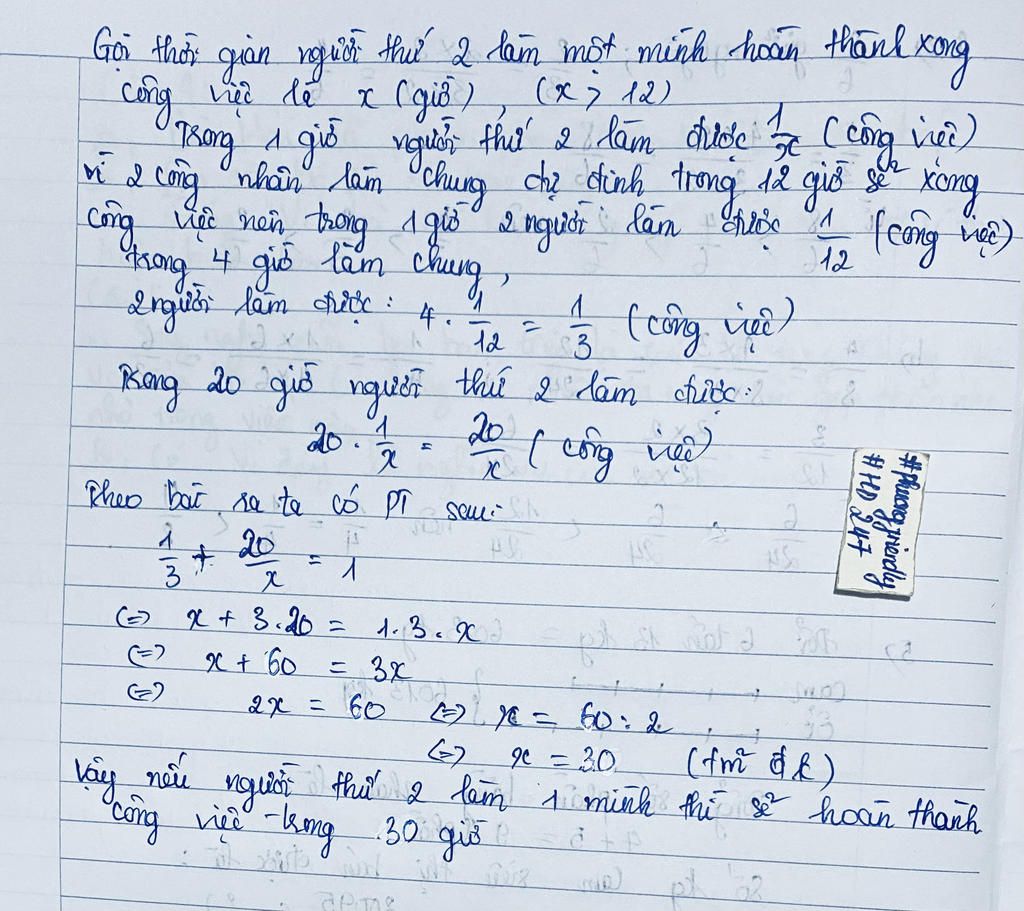 Gọi thời gian người thứ 2 làm một mình hoàn thành xong
công việc là x (giờ), (x > 12)
Trong 1 giờ người thứ 2 làm được 1/x (công việc)
vì 2 công nhân làm chung dự định trong 12 giờ sẽ xong
công việc nên trong 1 giờ 2 người làm được 1/12 (công việc)
trong 4 giờ làm chung,
2 người làm được: 4 . 1/12 = 1/3 (công việc)
Trong 20 giờ người thứ 2 làm được:
20 . 1/x = 20/x (công việc)
Theo bài ra ta có PT sau:
1/3 + 20/x = 1
<=> x + 3.20 = 1.3.x
<=> x + 60 = 3x
<=> 2x = 60 <=> x = 60 : 2
<=> x = 30 (tm đk)
Vậy nếu người thứ 2 làm 1 mình thì sẽ hoàn thành
công việc trong 30 giờ
#phuongfriendly
#HD247